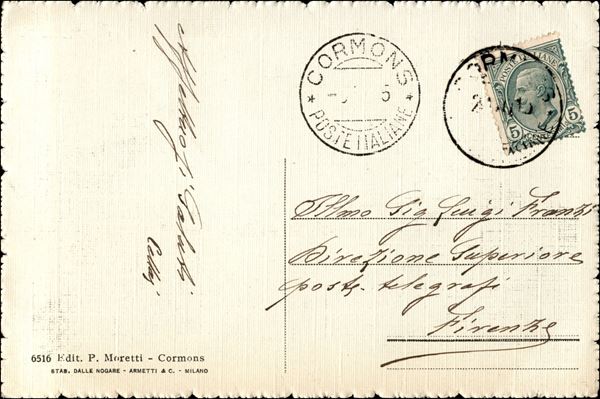 CORMONS
POSTE ITALIANE
POSTE ITALIANE
5 5
Affettuosi Saluti
Illmo Sig Luigi Franzi
Direzione Superiore
poste telegrafi
Firenze
6516 Edit. P. Moretti - Cormons
STAB. DALLE NOGARE - ARMETTI & C. - MILANO